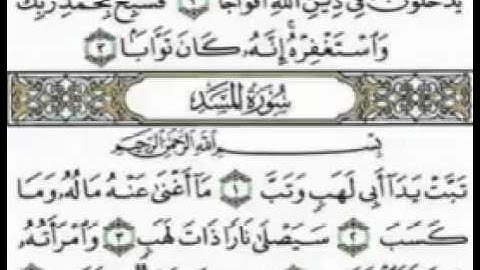 يَدْخُلُونَ فِي دِينِ اللَّهِ أَفْوَاجًا ٢ فَسَبِّحْ بِحَمْدِ رَبِّكَ
وَاسْتَغْفِرْهُ إِنَّهُ كَانَ تَوَّابًا ٣
سُورَةُ المَسَد
بِسْمِ اللَّهِ الرَّحْمَٰنِ الرَّحِيمِ
تَبَّتْ يَدَا أَبِي لَهَبٍ وَتَبَّ ١ مَا أَغْنَىٰ عَنْهُ مَالُهُ وَمَا
كَسَبَ ٢ سَيَصْلَىٰ نَارًا ذَاتَ لَهَبٍ ٣ وَامْرَأَتُهُ